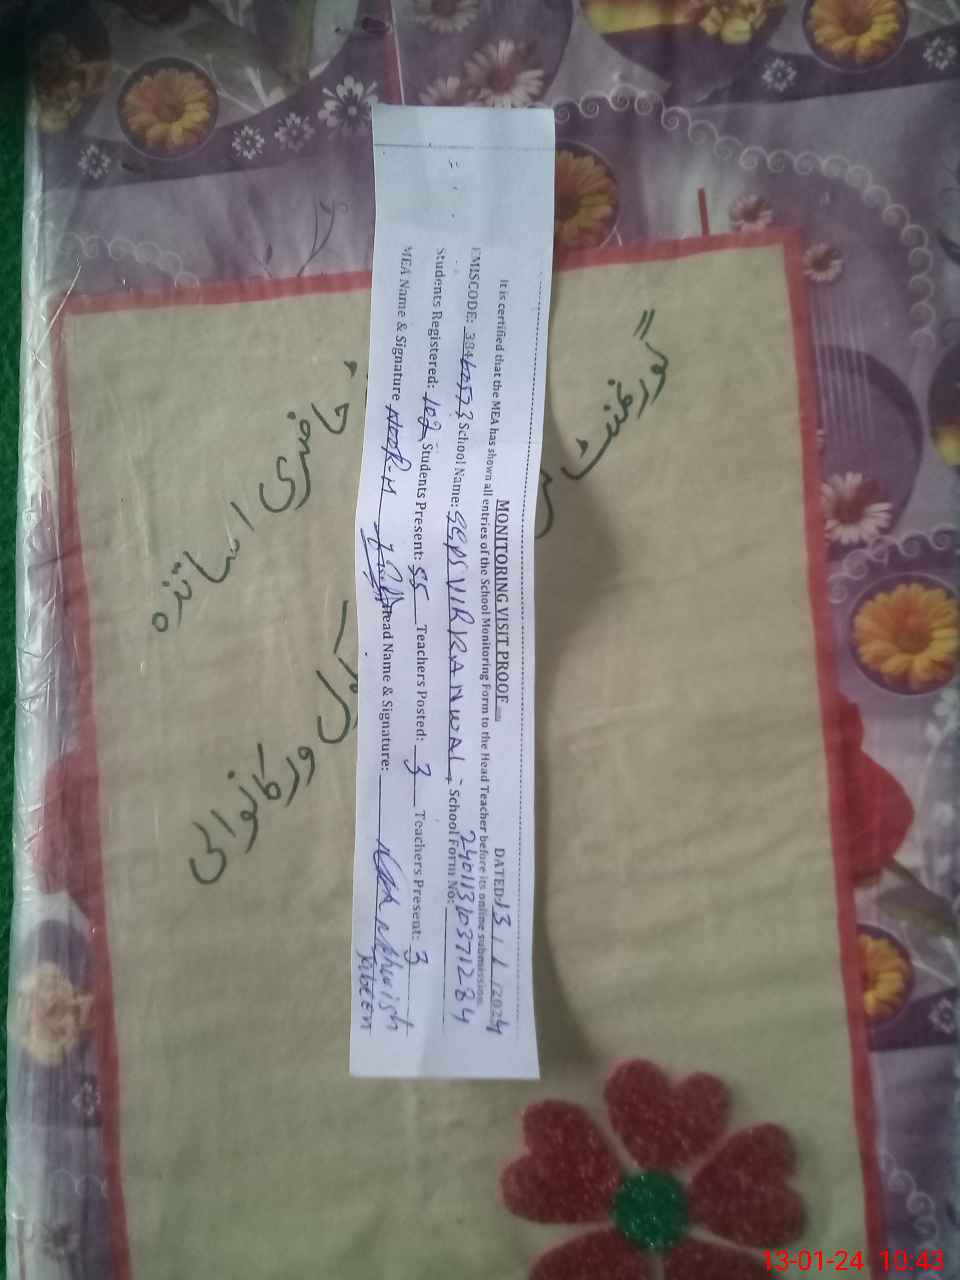 MONITORING VISIT PROOF
DATED: 13 / 1 / 2024
It is certified that the MEA has shown all entries of the School Monitoring Form to the Head Teacher before its online submission.
School Name: VIRKANWAL, School Form No: 24011310371284
EMISCODE:
Students Registered: 102 Students Present: 55 Teachers Posted: 3 Teachers Present: 3
MEA Name & Signature NOOR-M Head Name & Signature: Mehwish
Jabeen
گورنمنٹ
ورکانوالی
حاضری اساتذہ
13-01-24 10:43